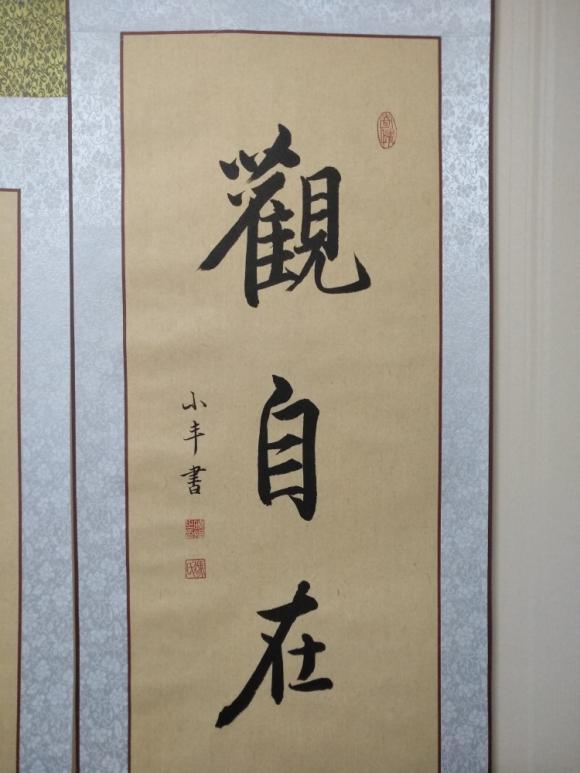 觀自在
小丰書